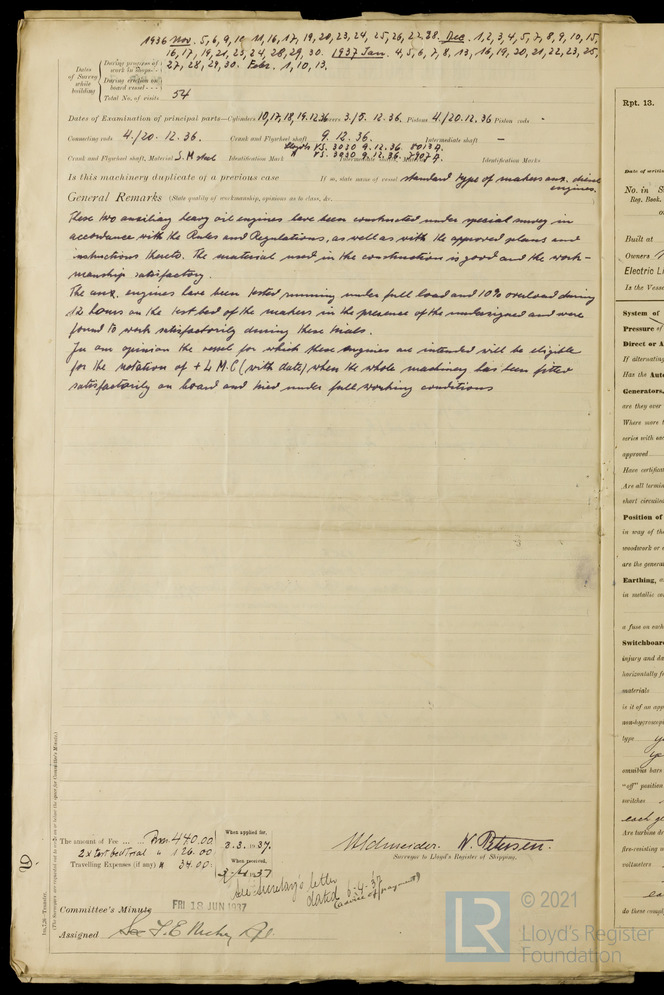 1936 Nov. 5, 6, 9, 10 11, 16, 17, 19, 20, 23, 24, 25, 26, 27, 28. Dec. 1, 2, 3, 4, 5, 7, 8, 9, 10, 15,
16, 17, 19, 21, 23, 24, 28, 29, 30. 1937 Jan. 4, 5, 6, 7, 8, 13, 16, 19, 20, 21, 22, 23, 25,
27, 28, 29, 30. Febr. 1, 10, 13.
Dates of Survey while building
During progress of work in Shops
During erection on board vessel
Total No. of visits 54
Dates of Examination of principal parts—Cylinders 10, 17, 18, 19. 12. 36 Covers 3./5. 12. 36. Pistons 4./20. 12. 36 Piston rods -
Connecting rods 4./20. 12. 36. Crank and Flywheel shaft 9. 12. 36. Intermediate shaft -
Crank and Flywheel shaft, Material S. M steel Identification Mark Lloyds KS. 3030 9. 12. 36 Identification Marks
Is this machinery duplicate of a previous case If so, state name of vessel standard type of makers aux. diesel
engines.
General Remarks (State quality of workmanship, opinions as to class, &c.
These two auxiliary heavy oil engines have been constructed under special survey in
accordance with the Rules and Regulations, as well as with the approved plans and
instructions thereto. The material used in the construction is good and the work-
manship satisfactory.
The aux. engines have been tested running under full load and 10% overload during
12 hours on the test bed of the makers in the presence of the undersigned and were
found to work satisfactorily during these trials.
In our opinion the vessel for which these engines are intended will be eligible
for the notation of + L M. C (with date) when the whole machinery has been fitted
satisfactorily on board and tried under full working conditions
The amount of Fee ... 440.00
2 x Test bed trial " 126.00
Travelling Expenses (if any) 34.00
When applied for,
2. 3. 1937.
When received,
1937
see secretary's letter
dated 6-4-37
(advice of payment)
W. Petersen.
Surveyor to Lloyd's Register of Shipping.
Committee's Minute FRI 18 JUN 1937
Assigned
Rpt. 13.
No. in
Reg. Book.
Built at
Owners
Electric Li
Is the Vesse
System of
Pressure of
Direct or A
If alternating
Has the Auto
Generators,
are they over
Where more t
series with eac
approved
Have certificat
Are all termin
short circuited
Position of
in way of the
woodwork or o
are the genera
Earthing,
in metallic
a fuse on each
Switchboar
injury and da
horizontally f
materials
is it of an app
non-hygroscopi
type
omnibus bars
"off" position
switches
each g
Are turbine d
fire-resisting
voltmeters
do these compl
LR
© 2021
Lloyd's Register
Foundation